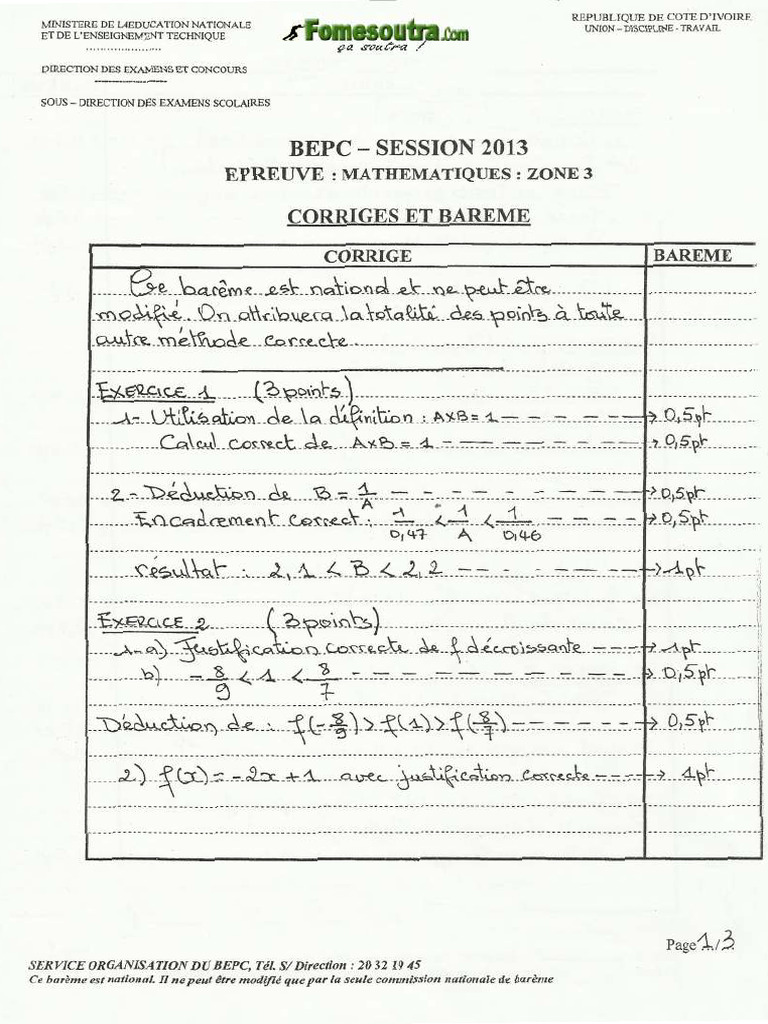 MINISTERE DE LÆDUCATION NATIONALE
ET DE L'ENSEIGNEMENT TECHNIQUE
REPUBLIQUE DE COTE D'IVOIRE
UNION – DISCIPLINE - TRAVAIL
Fomesoutra.Com
ça soutra !
DIRECTION DES EXAMENS ET CONCOURS
SOUS – DIRECTION DES EXAMENS SCOLAIRES
BEPC – SESSION 2013
EPREUVE : MATHEMATIQUES : ZONE 3
CORRIGES ET BAREME
CORRIGE BAREME
Ce barême est national et ne peut être
modifié. On attribuera la totalité des points à toute
autre méthode correcte.
EXERCICE 1 (3 points)
1- Utilisation de la définition : A×B=1 → 0,5pt
Calcul correct de A×B = 1 → 0,5pt
2 - Déduction de B = 1/A → 0,5pt
Encadrement correct : 1/0,47 < 1/A < 1/0,46 → 0,5pt
résultat : 2,1 < B < 2,2 → 1pt
EXERCICE 2 (3 points)
1-a) Justification correcte de f décroissante → 1pt
b) -8/9 < 1 < 8/7 → 0,5pt
Déduction de : f(-8/9) > f(1) > f(8/7) → 0,5pt
2) f(x) = -2x + 1 avec justification correcte → 1pt
Page 1/3
SERVICE ORGANISATION DU BEPC, Tél. S/ Direction : 20 32 19 45
Ce barème est national. Il ne peut être modifié que par la seule commission nationale de barème